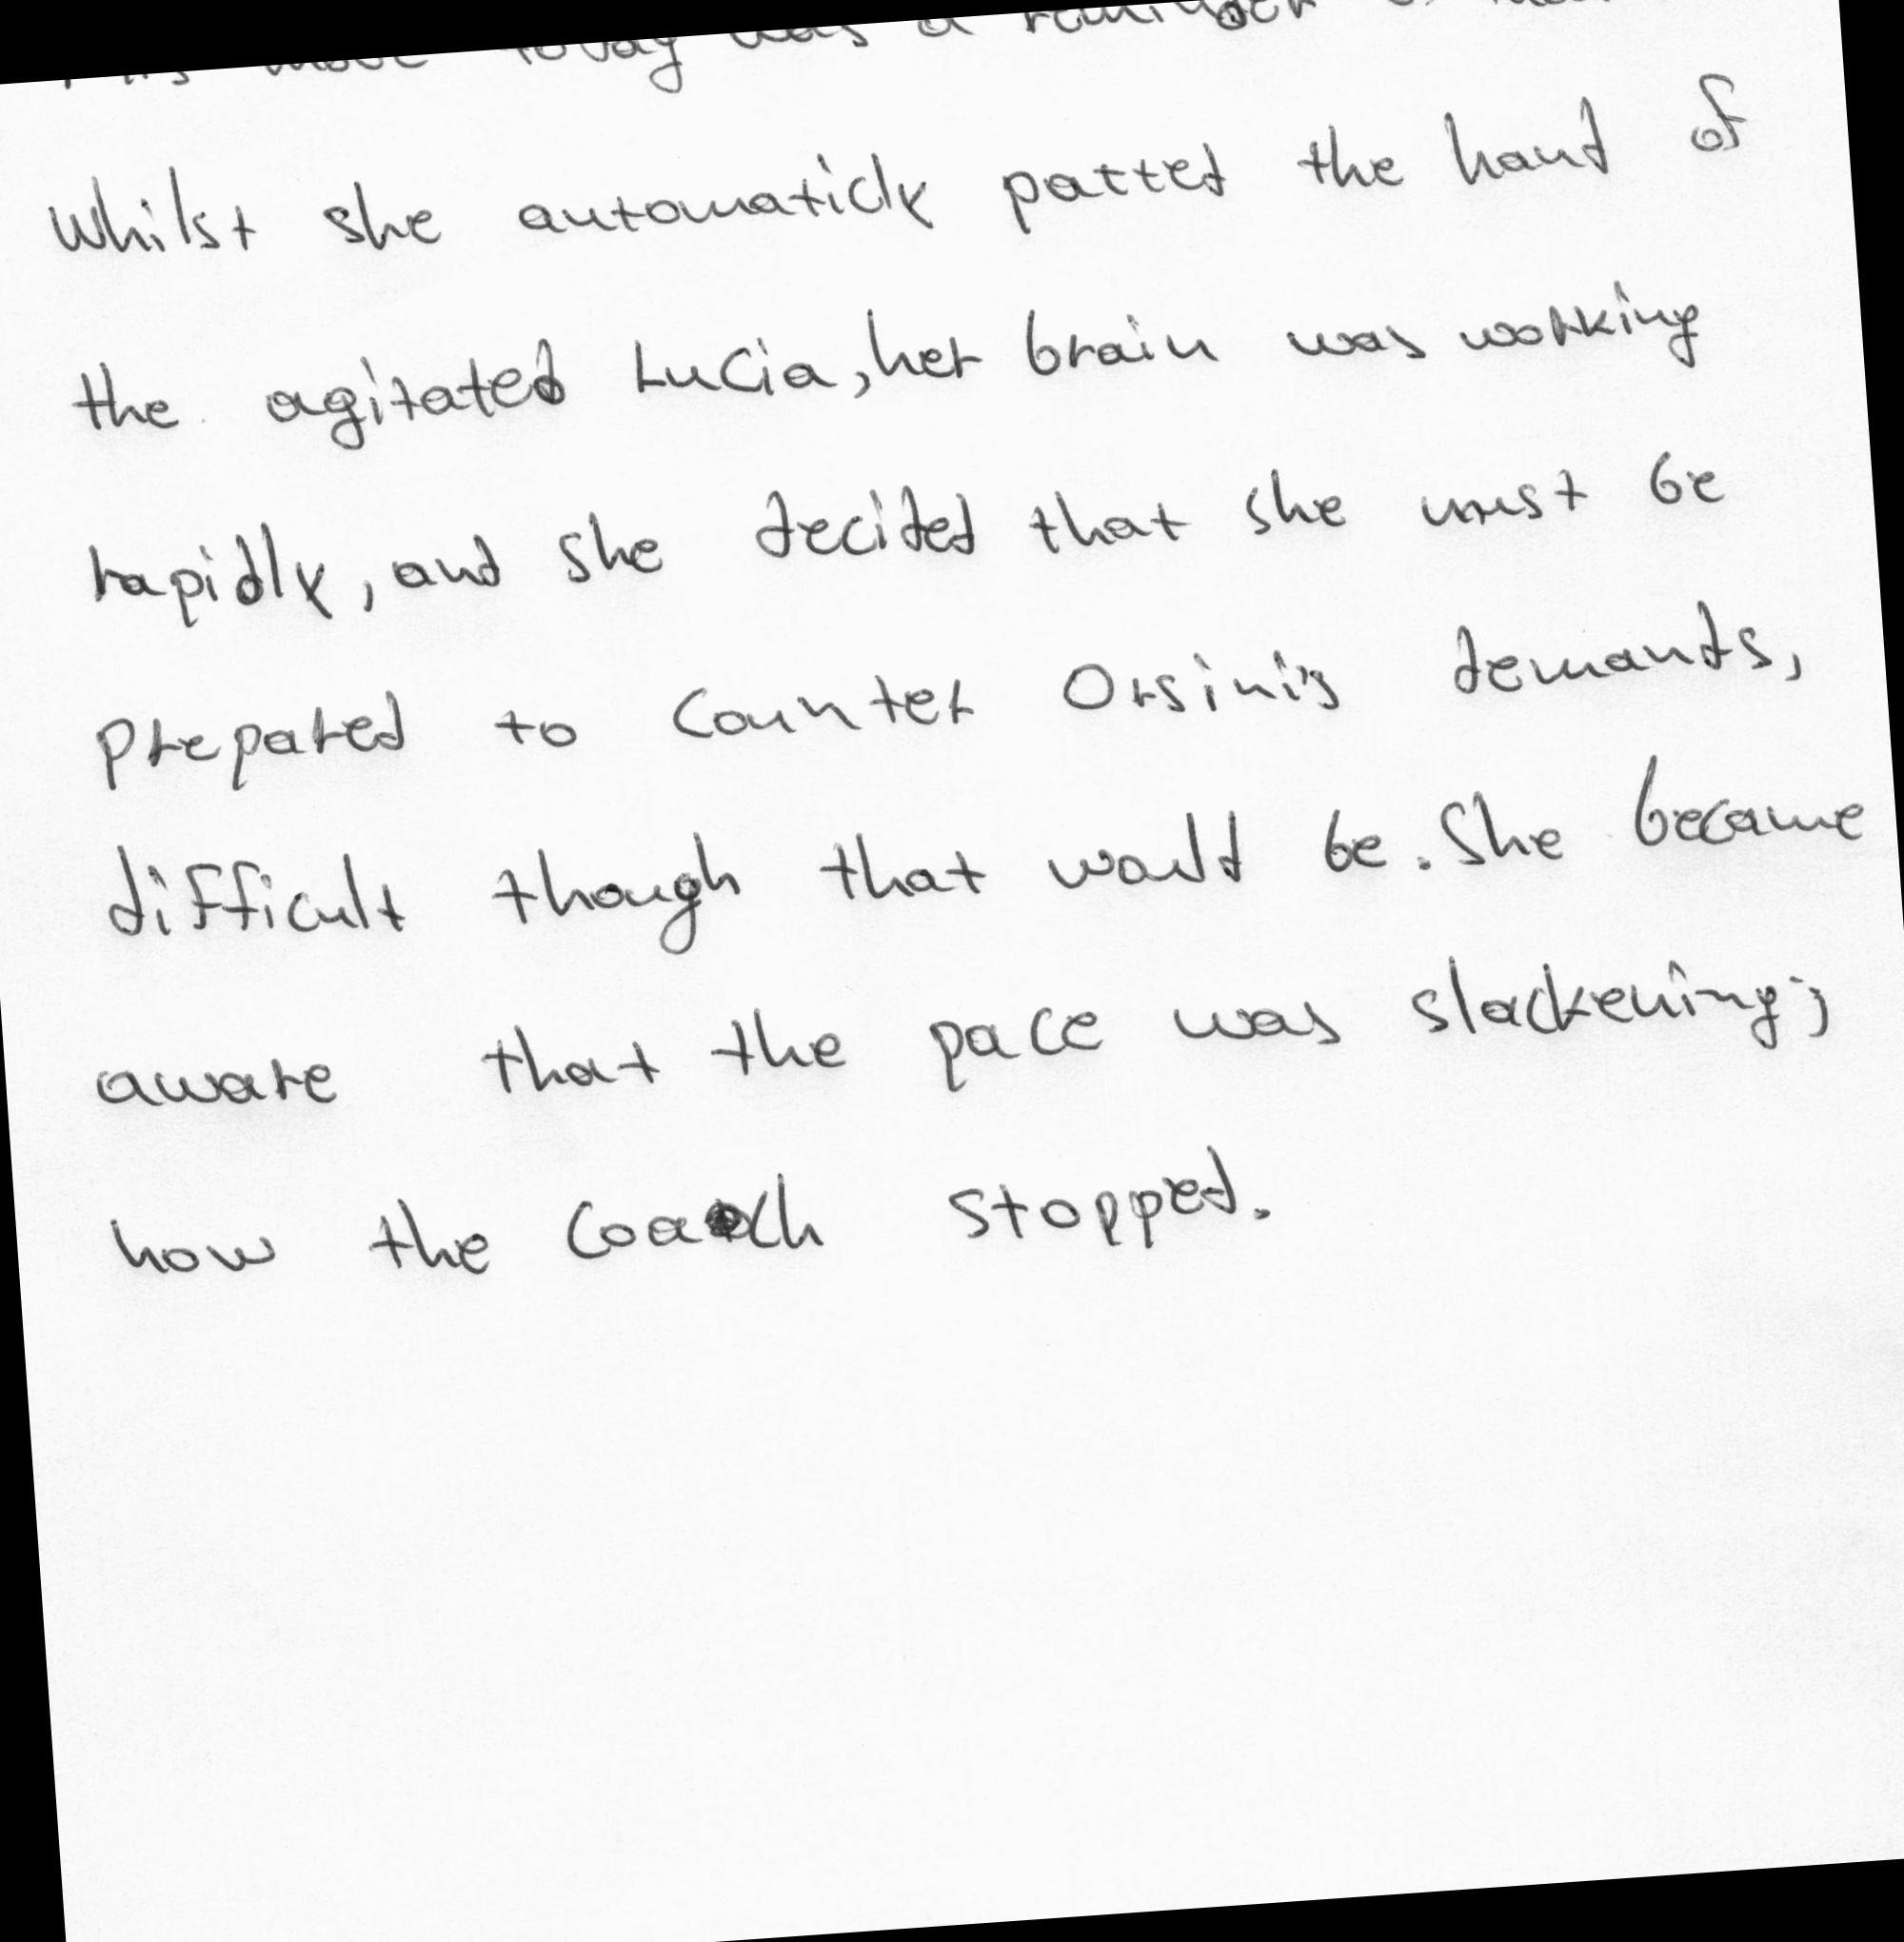 today was a reminder
Whilst she automaticly patted the hand of
the agitated Lucia, her brain was working
rapidly, and she decided that she must be
prepared to counter Orsini's demands,
difficult though that would be. She became
aware that the pace was slackening;
how the coach stopped.